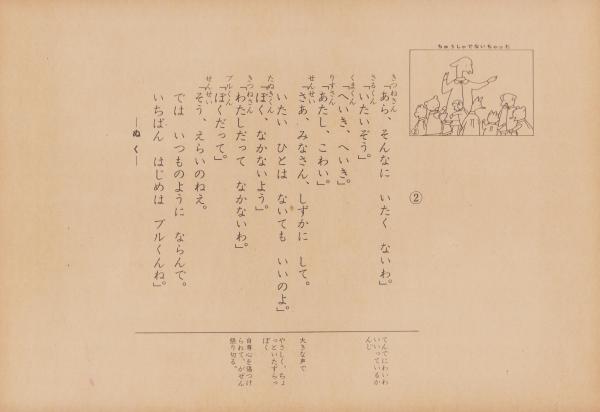 ちゅうしゃでないちゃった
②
きつねさん
「あら、そんなに いたく ないわ」。
さるくん
「いたいぞう」。
くまくん
「へいき、へいき」。
りすさん
「あたし、こわい」。
せんせい
「さあ、みなさん、しずかに して。
いたい ひとは ないても いいのよ」。
たぬきくん
「ぼく、なかないよう」。
きつねさん
「わたしだって なかないわ」。
ブルくん
「ぼくだって」。
せんせい
「そう、えらいのねえ。
では いつものように ならんで。
いちばん はじめは ブルくんね」。
―ぬ く―
てんでにわいわ
いいっているか
んじ
大きな声で
やさしく、ちょ
っといたずらっ
ぽく
自尊心を傷つけ
られて、がぜん
張り切る。